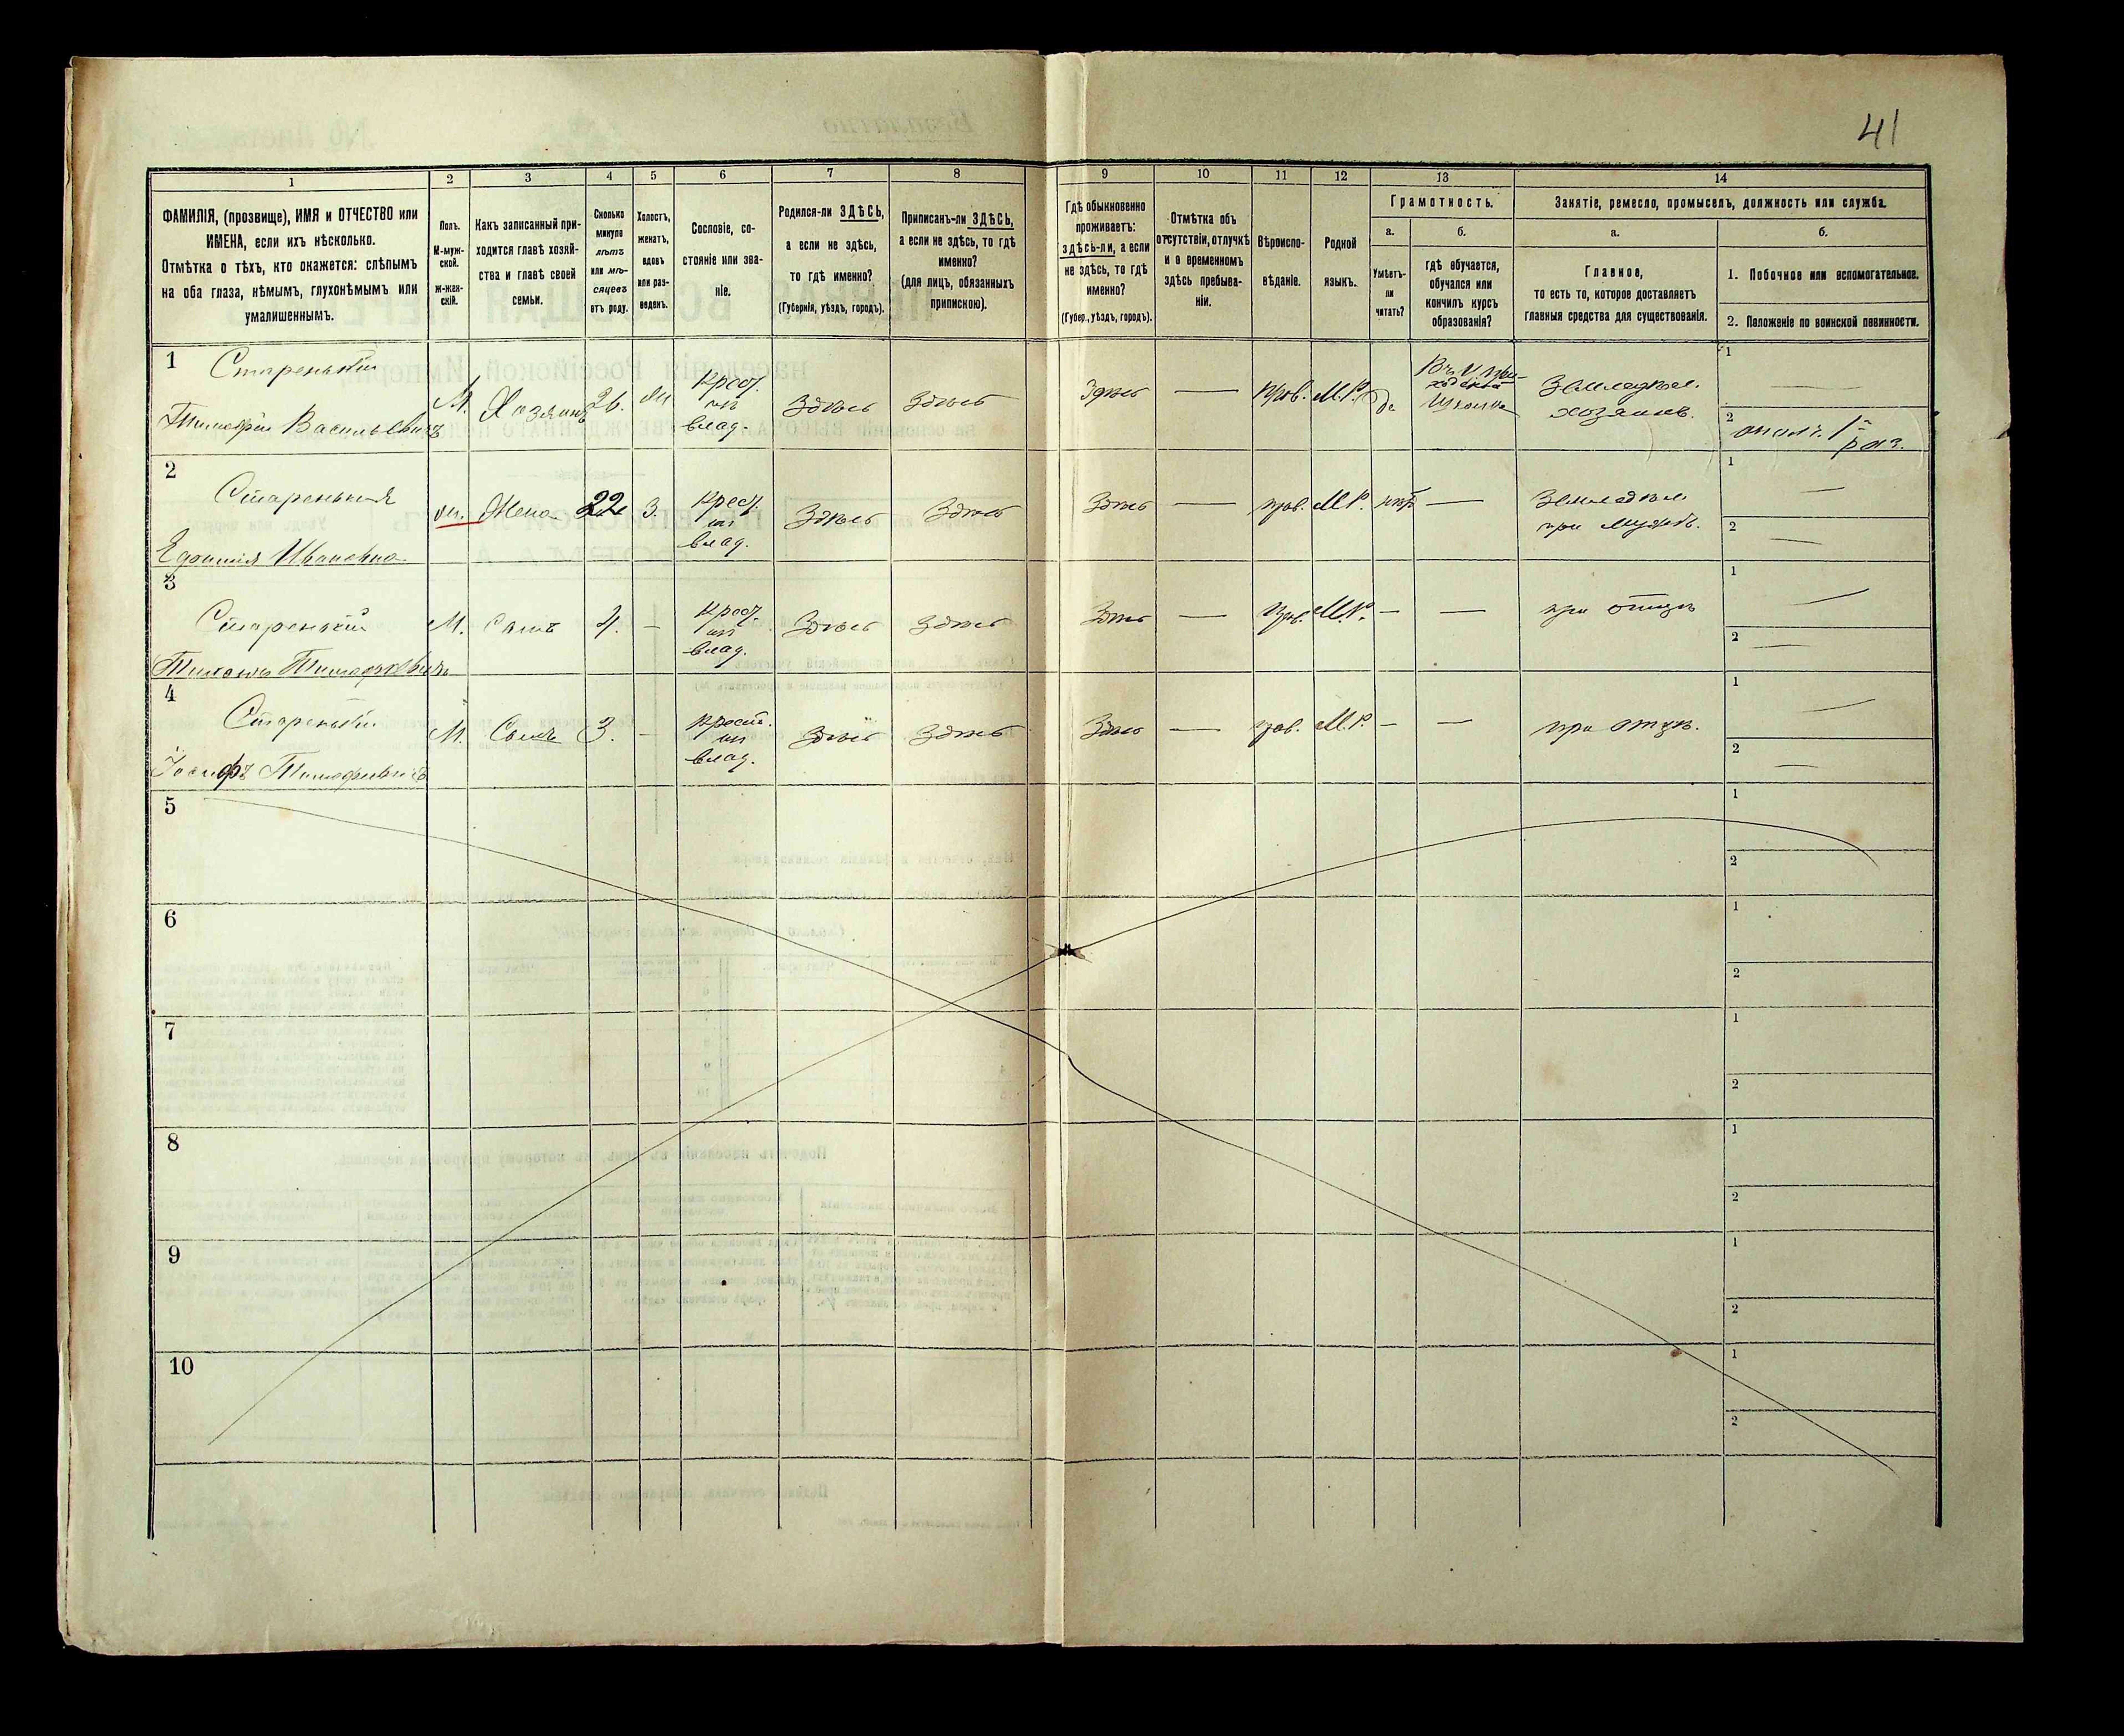 41
1
2
3
4
5
6
7
8
9
10
11
12
13
14
ФАМИЛІЯ, (прозвище), ИМЯ и ОТЧЕСТВО или
ИМЕНА, если ихъ нѣсколько.
Отмѣтка о тѣхъ, кто окажется: слѣпымъ
на оба глаза, нѣмымъ, глухонѣмымъ или
умалишеннымъ.
Полъ.
М-муж-
ской.
ж-жен-
скій.
Какъ записанный при-
ходится главѣ хозяй-
ства и главѣ своей
семьи.
Сколько
минуло
лѣтъ
или мѣ-
сяцевъ
отъ роду.
Холостъ,
женатъ,
вдовъ
или раз-
веденъ.
Сословіе, со-
стояніе или зва-
ніе.
Родился-ли ЗДѢСЬ,
а если не здѣсь,
то гдѣ именно?
(Губернія, уѣздъ, городъ).
Приписанъ-ли ЗДѢСЬ,
а если не здѣсь, то гдѣ
именно?
(для лицъ, обязанныхъ
припискою).
Гдѣ обыкновенно
проживаетъ:
здѣсь-ли, а если
не здѣсь, то гдѣ
именно?
(Губер., уѣздъ, городъ).
Отмѣтка объ
отсутствіи, отлучкѣ
и о временномъ
здѣсь пребыва-
ніи.
Вѣроиспо-
вѣданіе.
Родной
языкъ.
Грамотность.
а.
Умѣетъ-
ли
читать?
б.
гдѣ обучается,
обучался или
кончилъ курсъ
образованія?
Занятіе, ремесло, промыселъ, должность или служба.
а.
Главное,
то есть то, которое доставляетъ
главныя средства для существованія.
б.
1. Побочное или вспомогательное.
2. Положеніе по воинской повинности.
1
Старенькій
Тимофѣй Васильевичъ
М.
Хозяинъ
26.
Крест.
из
влад.
Здѣсь
Здѣсь
Здѣсь
—
прав.
М.Р.
да
Землед.
хозяинъ.
1
—
2
ополч. 1
раз.
2
Старенькая
Ивановна
ж.
Жена
22
З.
Крест.
из
влад.
Здѣсь
Здѣсь
Здѣсь
—
прав.
М.Р.
нѣтъ
—
Землед.
при мужѣ.
1
—
2
—
3
Старенькій
Тимофѣевичъ
М.
Сынъ
4.
—
Крест.
из
влад.
Здѣсь
Здѣсь
Здѣсь
—
прав.
М.Р.
—
—
при отцѣ
1
—
2
—
4
Старенькій
Іосифъ Тимофѣевичъ
М.
Сынъ
3.
—
Крест.
из
влад.
Здѣсь
Здѣсь
Здѣсь
—
прав.
М.Р.
—
—
при отцѣ.
1
—
2
—
5
1
2
6
1
2
7
1
2
8
1
2
9
1
2
10
1
2